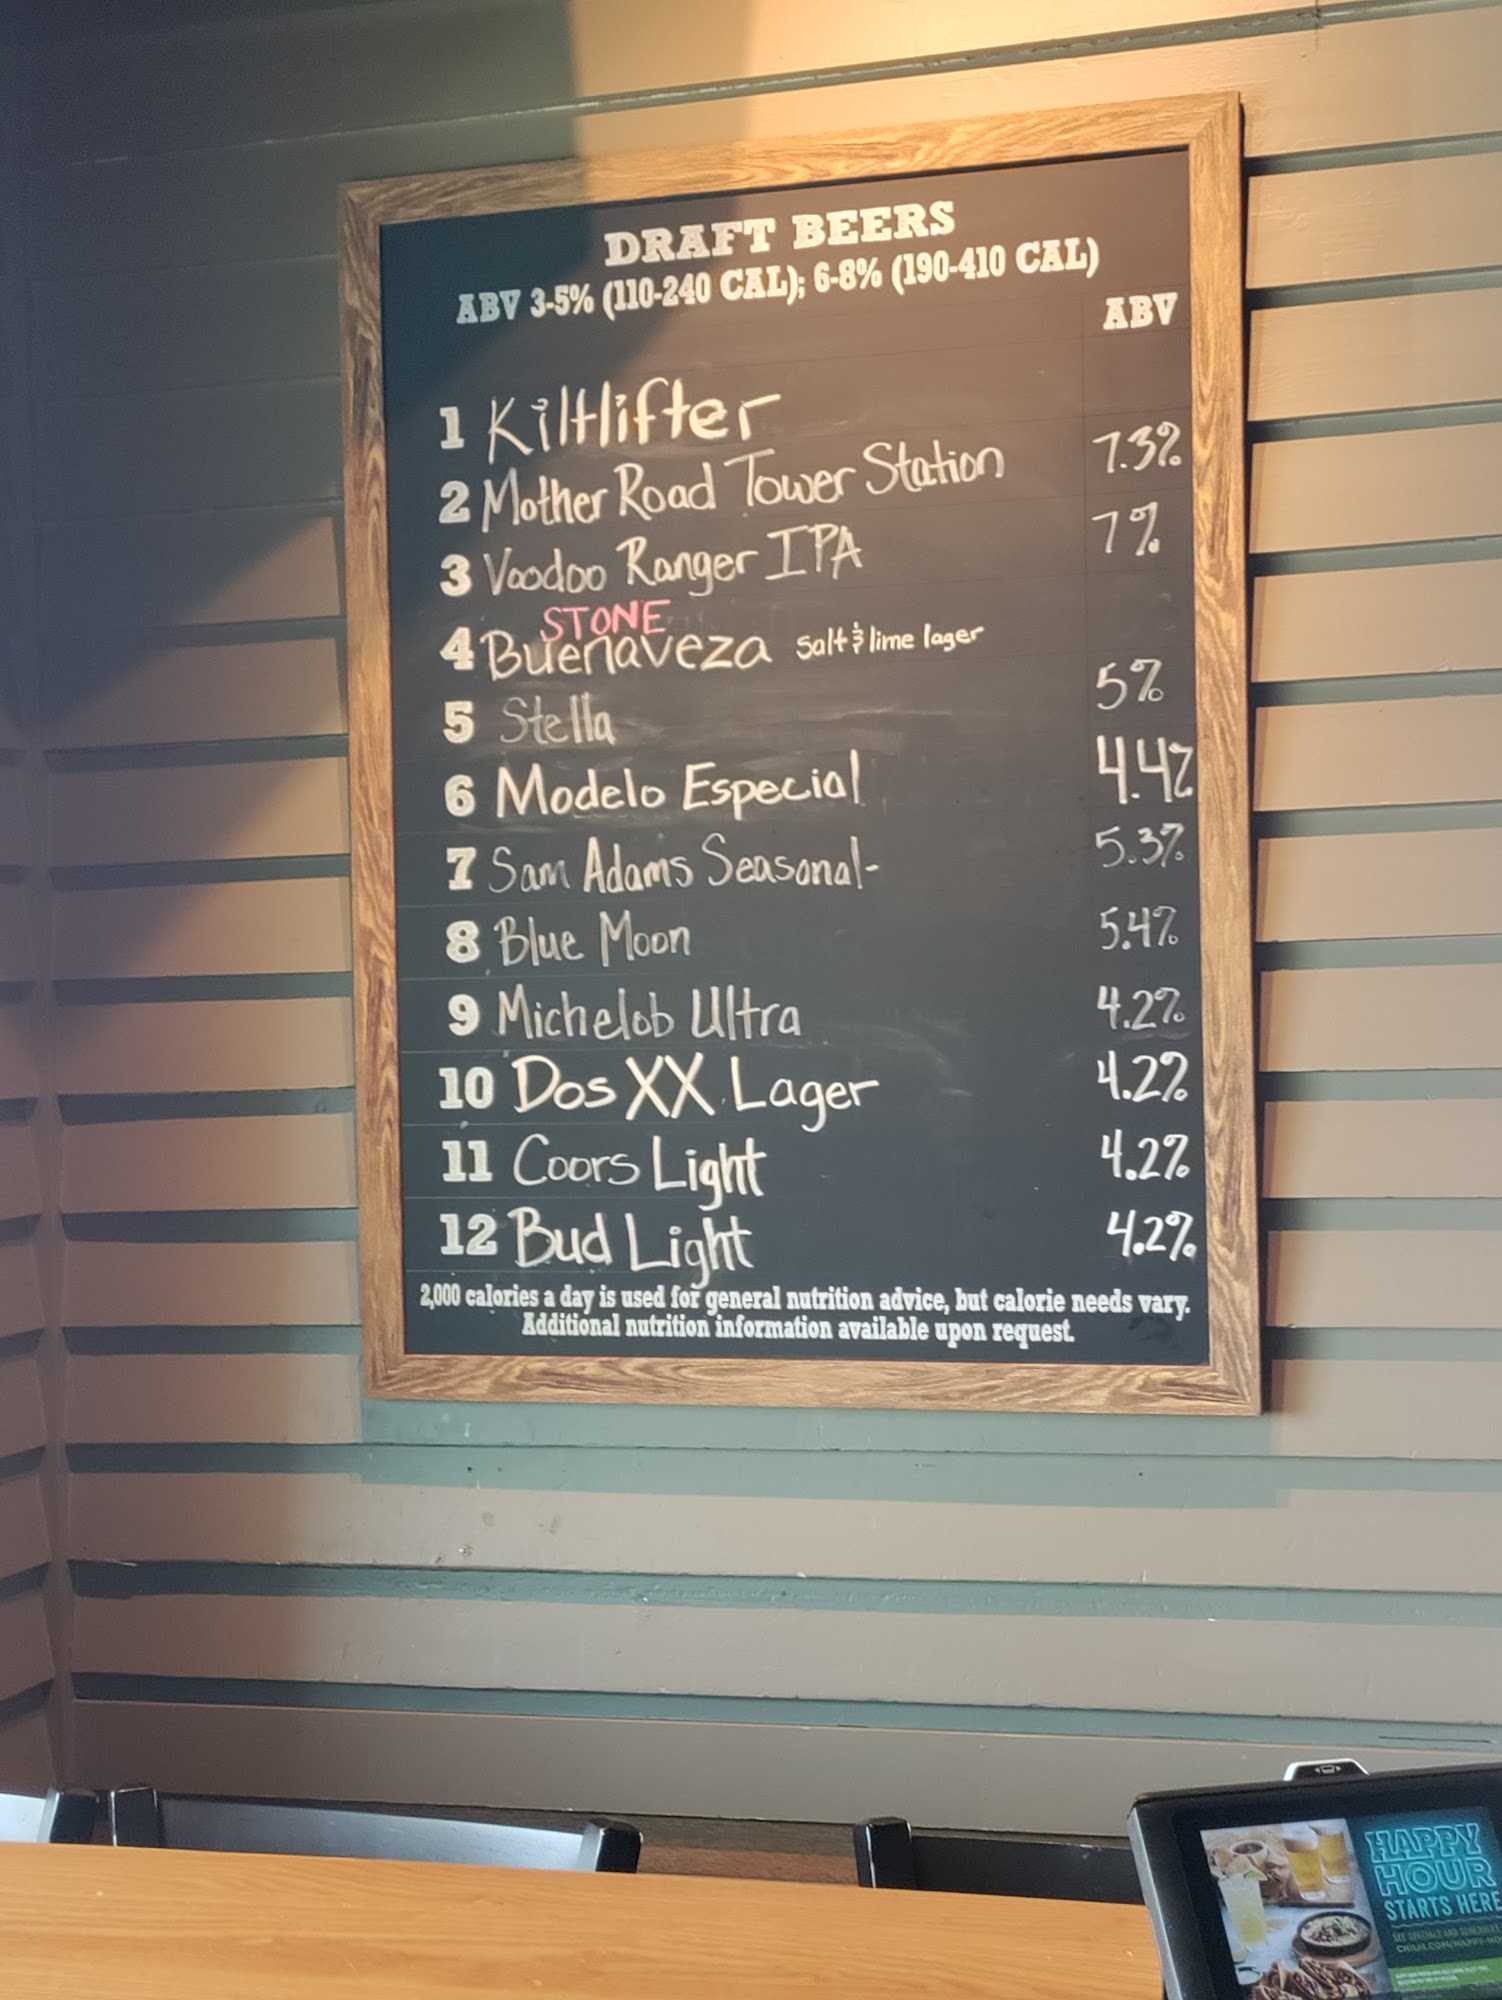 DRAFT BEERS
ABV 3-5% (110-240 CAL); 6-8% (190-410 CAL)
ABV
1 Kiltlifter
2 Mother Road Tower Station 7.3%
3 Voodoo Ranger IPA 7%
STONE
4 Buenaveza Salt & lime lager
5 Stella 5%
6 Modelo Especial 4.4%
7 Sam Adams Seasonal- 5.3%
8 Blue Moon 5.4%
9 Michelob Ultra 4.2%
10 Dos XX Lager 4.2%
11 Coors Light 4.2%
12 Bud Light 4.2%
2,000 calories a day is used for general nutrition advice, but calorie needs vary.
Additional nutrition information available upon request.
HAPPY
HOUR
STARTS HERE